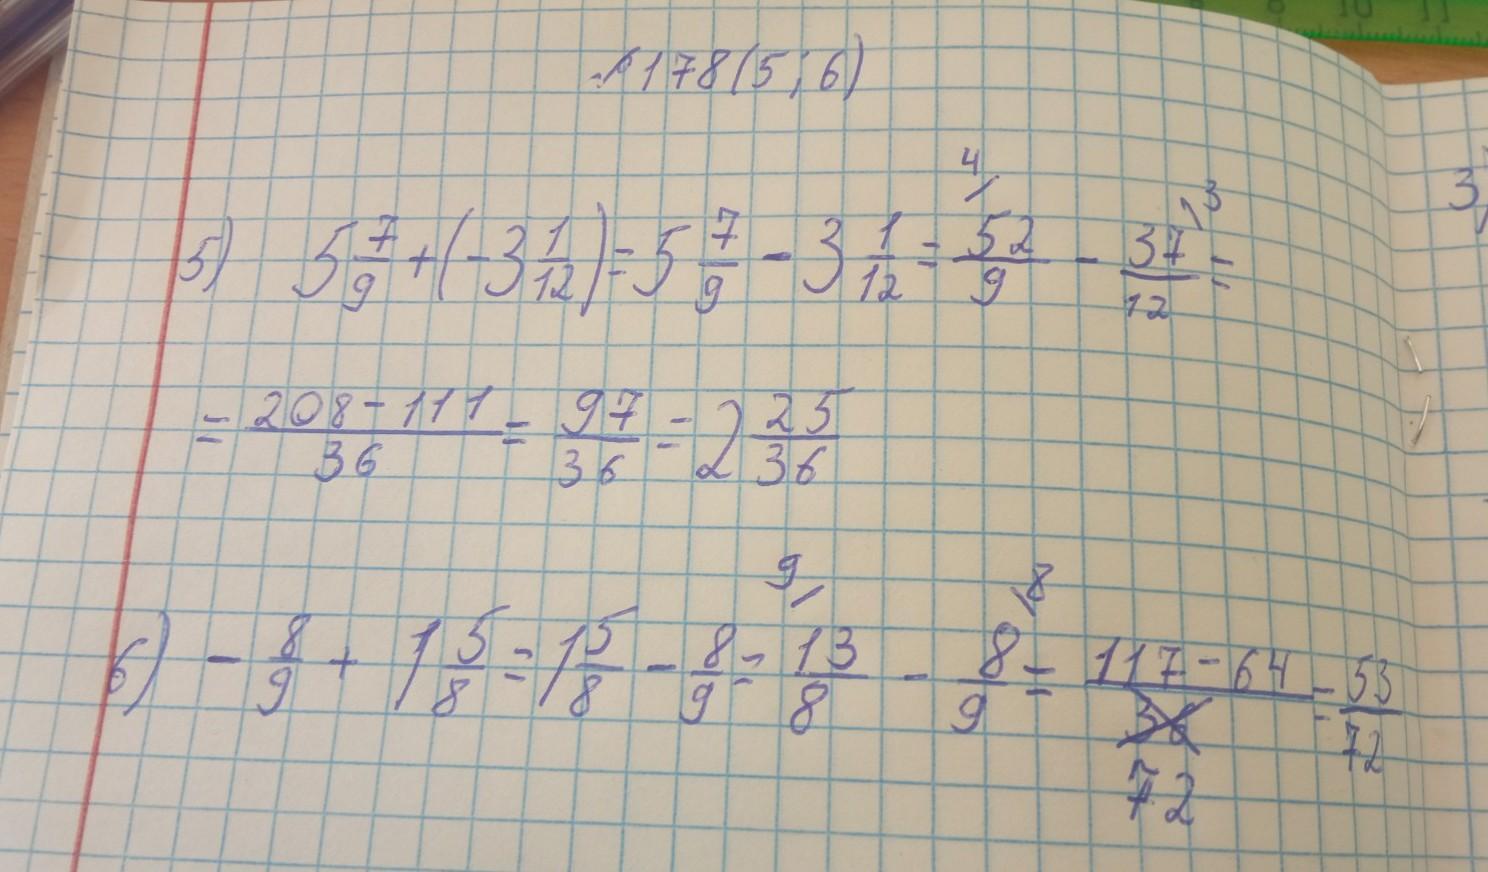 №178(5;6)
5) 5 7/9 + (-3 1/12) = 5 7/9 - 3 1/12 = 4/ 52/9 - 37/12 \3 =
= 208-111/36 = 97/36 = 2 25/36
6) - 8/9 + 1 5/8 = 1 5/8 - 8/9 = 9/ 13/8 - 8/9 \8 = 117-64/72 = 53/72
3)
8 10 11